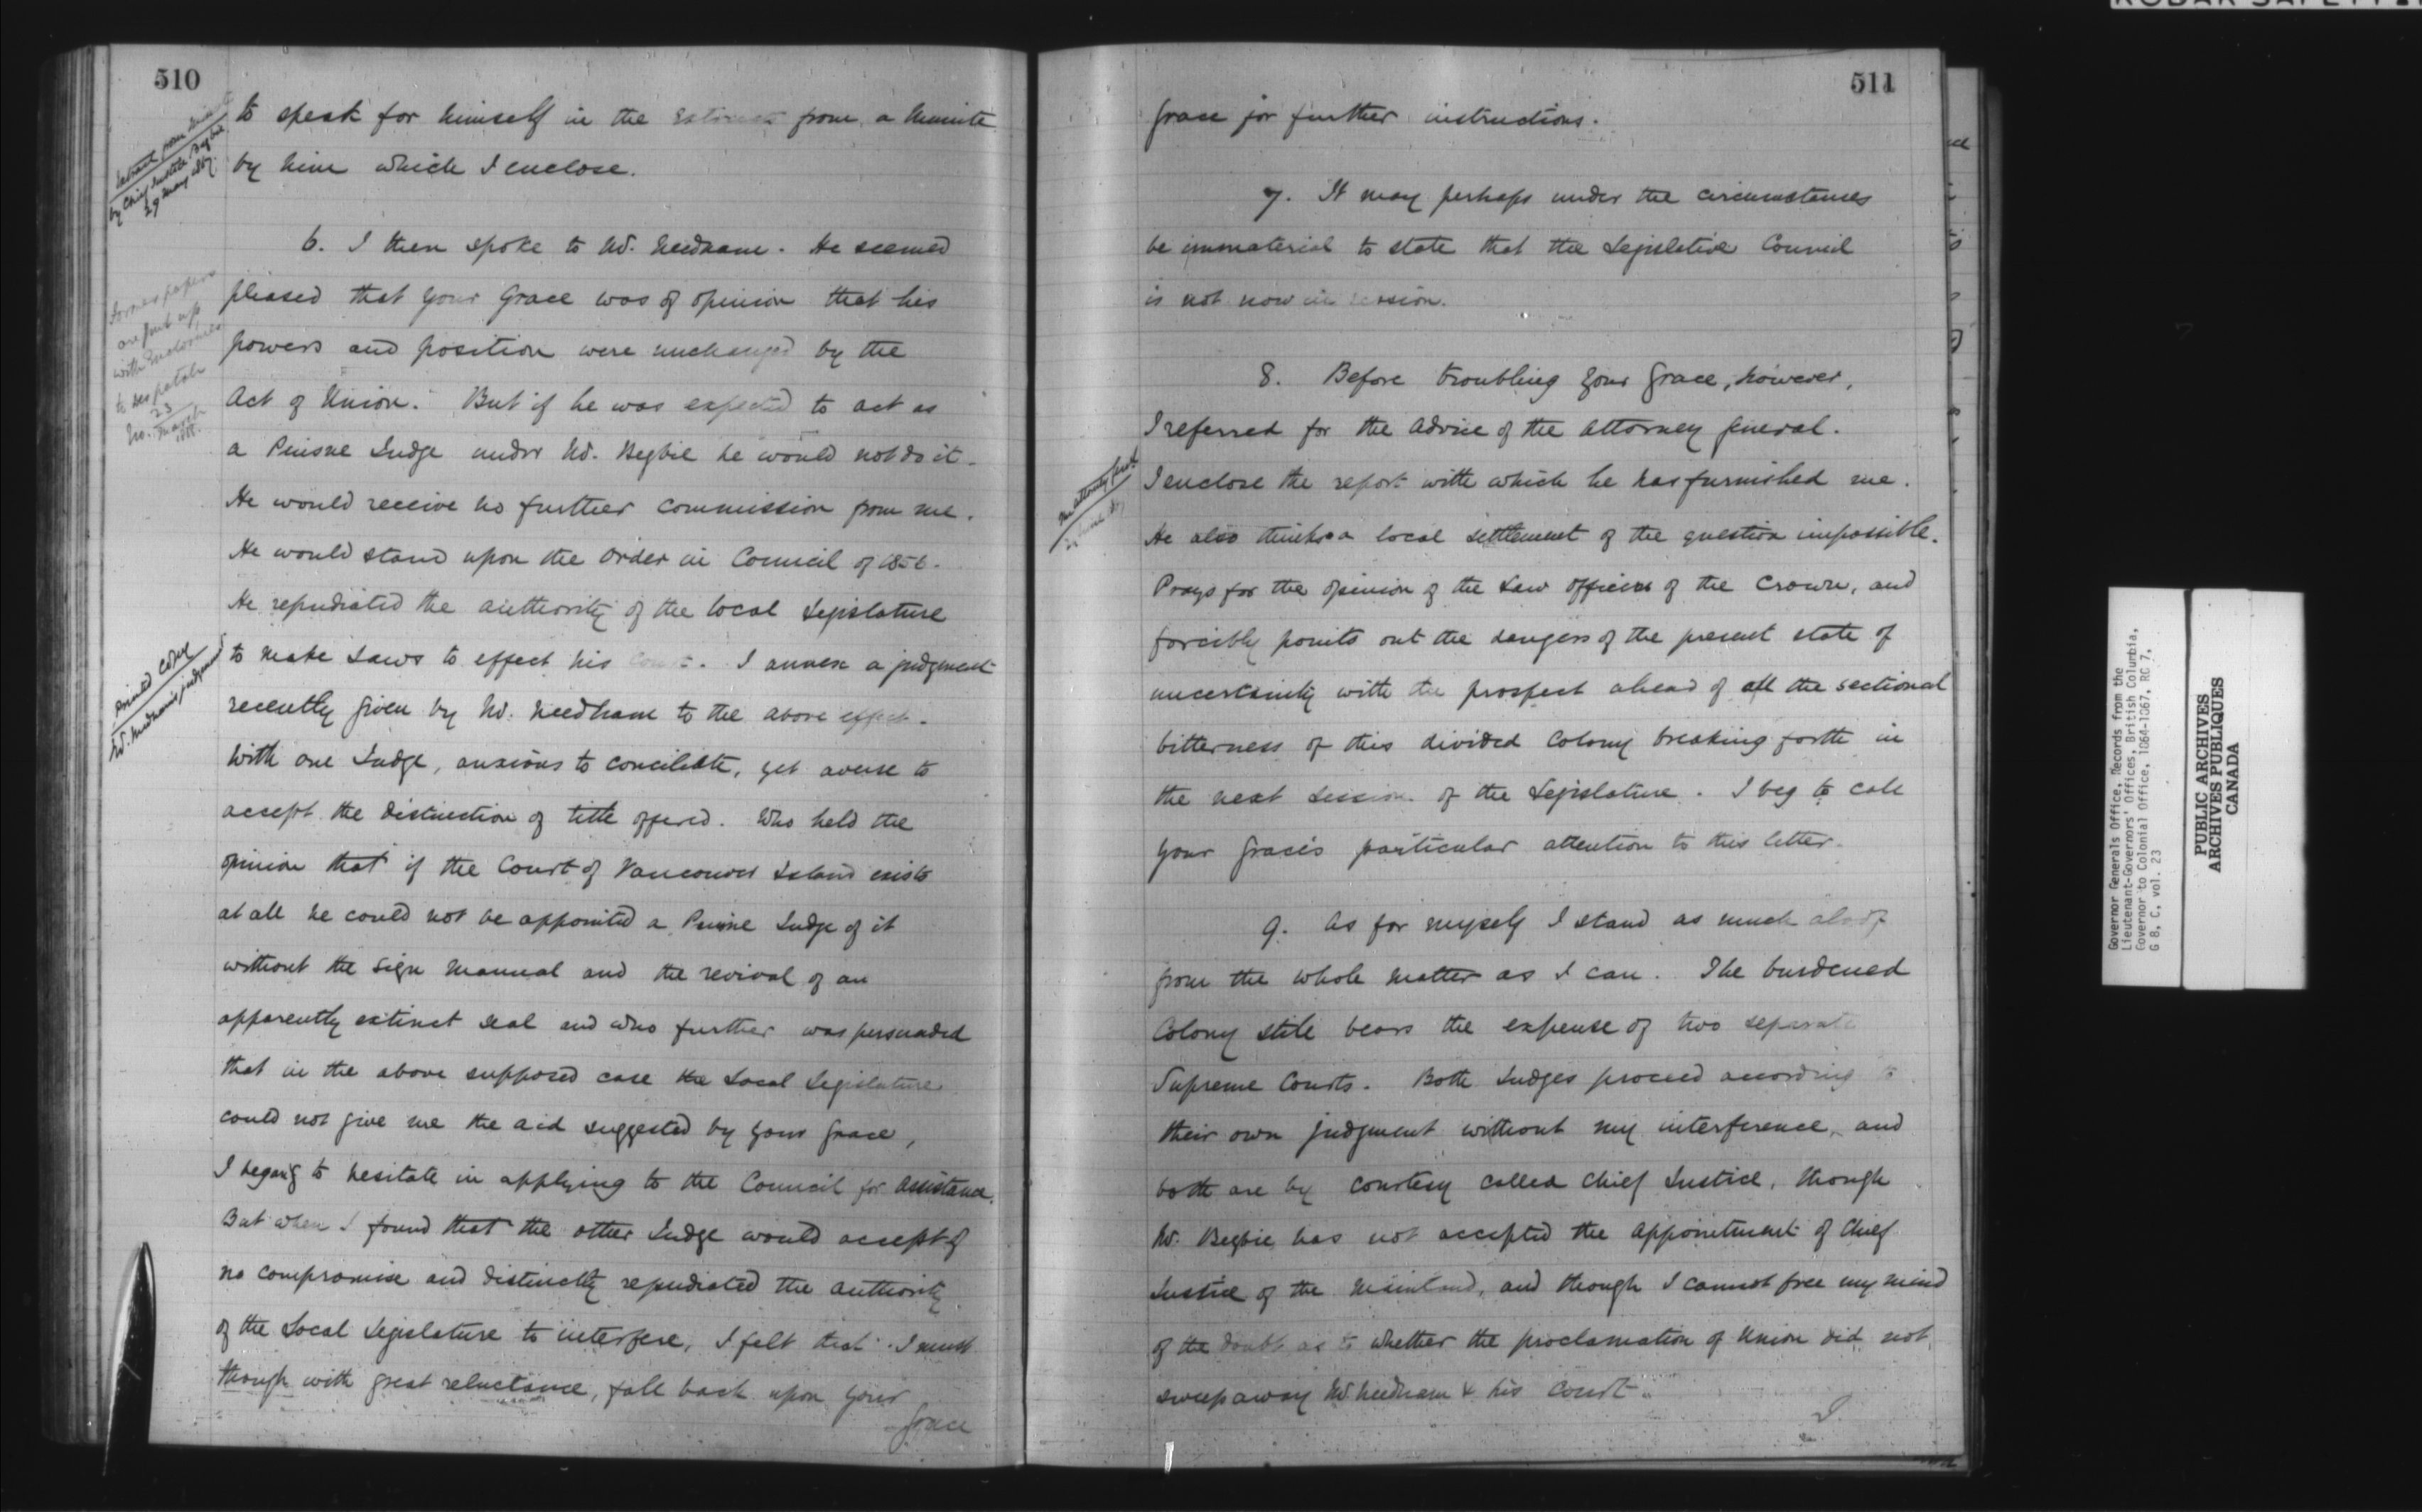 510
to speak for himself in the extract from a Minute
by him which I enclose.
Extract from Minute
by Chief Justice Begbie
29 May 1867.
6. I then spoke to Mr. Needham. He seemed
pleased that your Grace was of opinion that his
powers and position were unchanged by the
Act of Union. But if he was expected to act as
a Puisne Judge under Mr. Begbie he would not do it.
He would receive no further commission from me.
He would stand upon the Order in Council of 1856.
He repudiated the authority of the local Legislature
to make Laws to effect his Court. I annex a judgment
recently given by Mr. Needham to the above effect.
Former papers
are put up
with Enclosures
to despatch
No. 23
March
Printed Copy
Mr. Needham's judgement
With one Judge, anxious to conciliate, yet averse to
accept the distinction of title offered. Who held the
opinion that if the Court of Vancouver Island exists
at all he could not be appointed a Puisne Judge of it
without the Sign Manual and the revival of an
apparently extinct seal and who further was persuaded
that in the above supposed case the Local Legislature
could not give me the aid suggested by your Grace,
I began to hesitate in applying to the Council for assistance.
But when I found that the other Judge would accept of
no compromise and distinctly repudiated the authority
of the Local Legislature to interfere, I felt that I must
though with great reluctance, fall back upon your
Grace
511
Grace for further instructions.
7. It may perhaps under the circumstances
be immaterial to state that the Legislative Council
is not now in session.
8. Before troubling your Grace, however,
I referred for the advice of the Attorney General.
I enclose the report with which he has furnished me.
He also thinks a local settlement of the question impossible.
Prays for the opinion of the Law officers of the Crown, and
forcibly points out the dangers of the present state of
uncertainty with the prospect ahead of all the sectional
bitterness of this divided Colony breaking forth in
the next session of the Legislature. I beg to call
your Grace's particular attention to this letter.
The Attorney Genl
9. As for myself I stand as much aloof
from the whole matter as I can. The burdened
Colony still bears the expense of two separate
Supreme Courts. Both Judges proceed according to
their own judgment without my interference, and
both are by courtesy called Chief Justice, though
Mr. Begbie has not accepted the appointment of Chief
Justice of the Mainland, and though I cannot free my mind
of the doubt as to whether the proclamation of Union did not
sweep away Mr Needham & his Court.
I.
Governor Generals Office, Records from the
Lieutenant-Governors' Offices, British Columbia,
Governor to Colonial Office, 1864-1867, RG 7,
G 8, C, vol. 23
PUBLIC ARCHIVES
ARCHIVES PUBLIQUES
CANADA